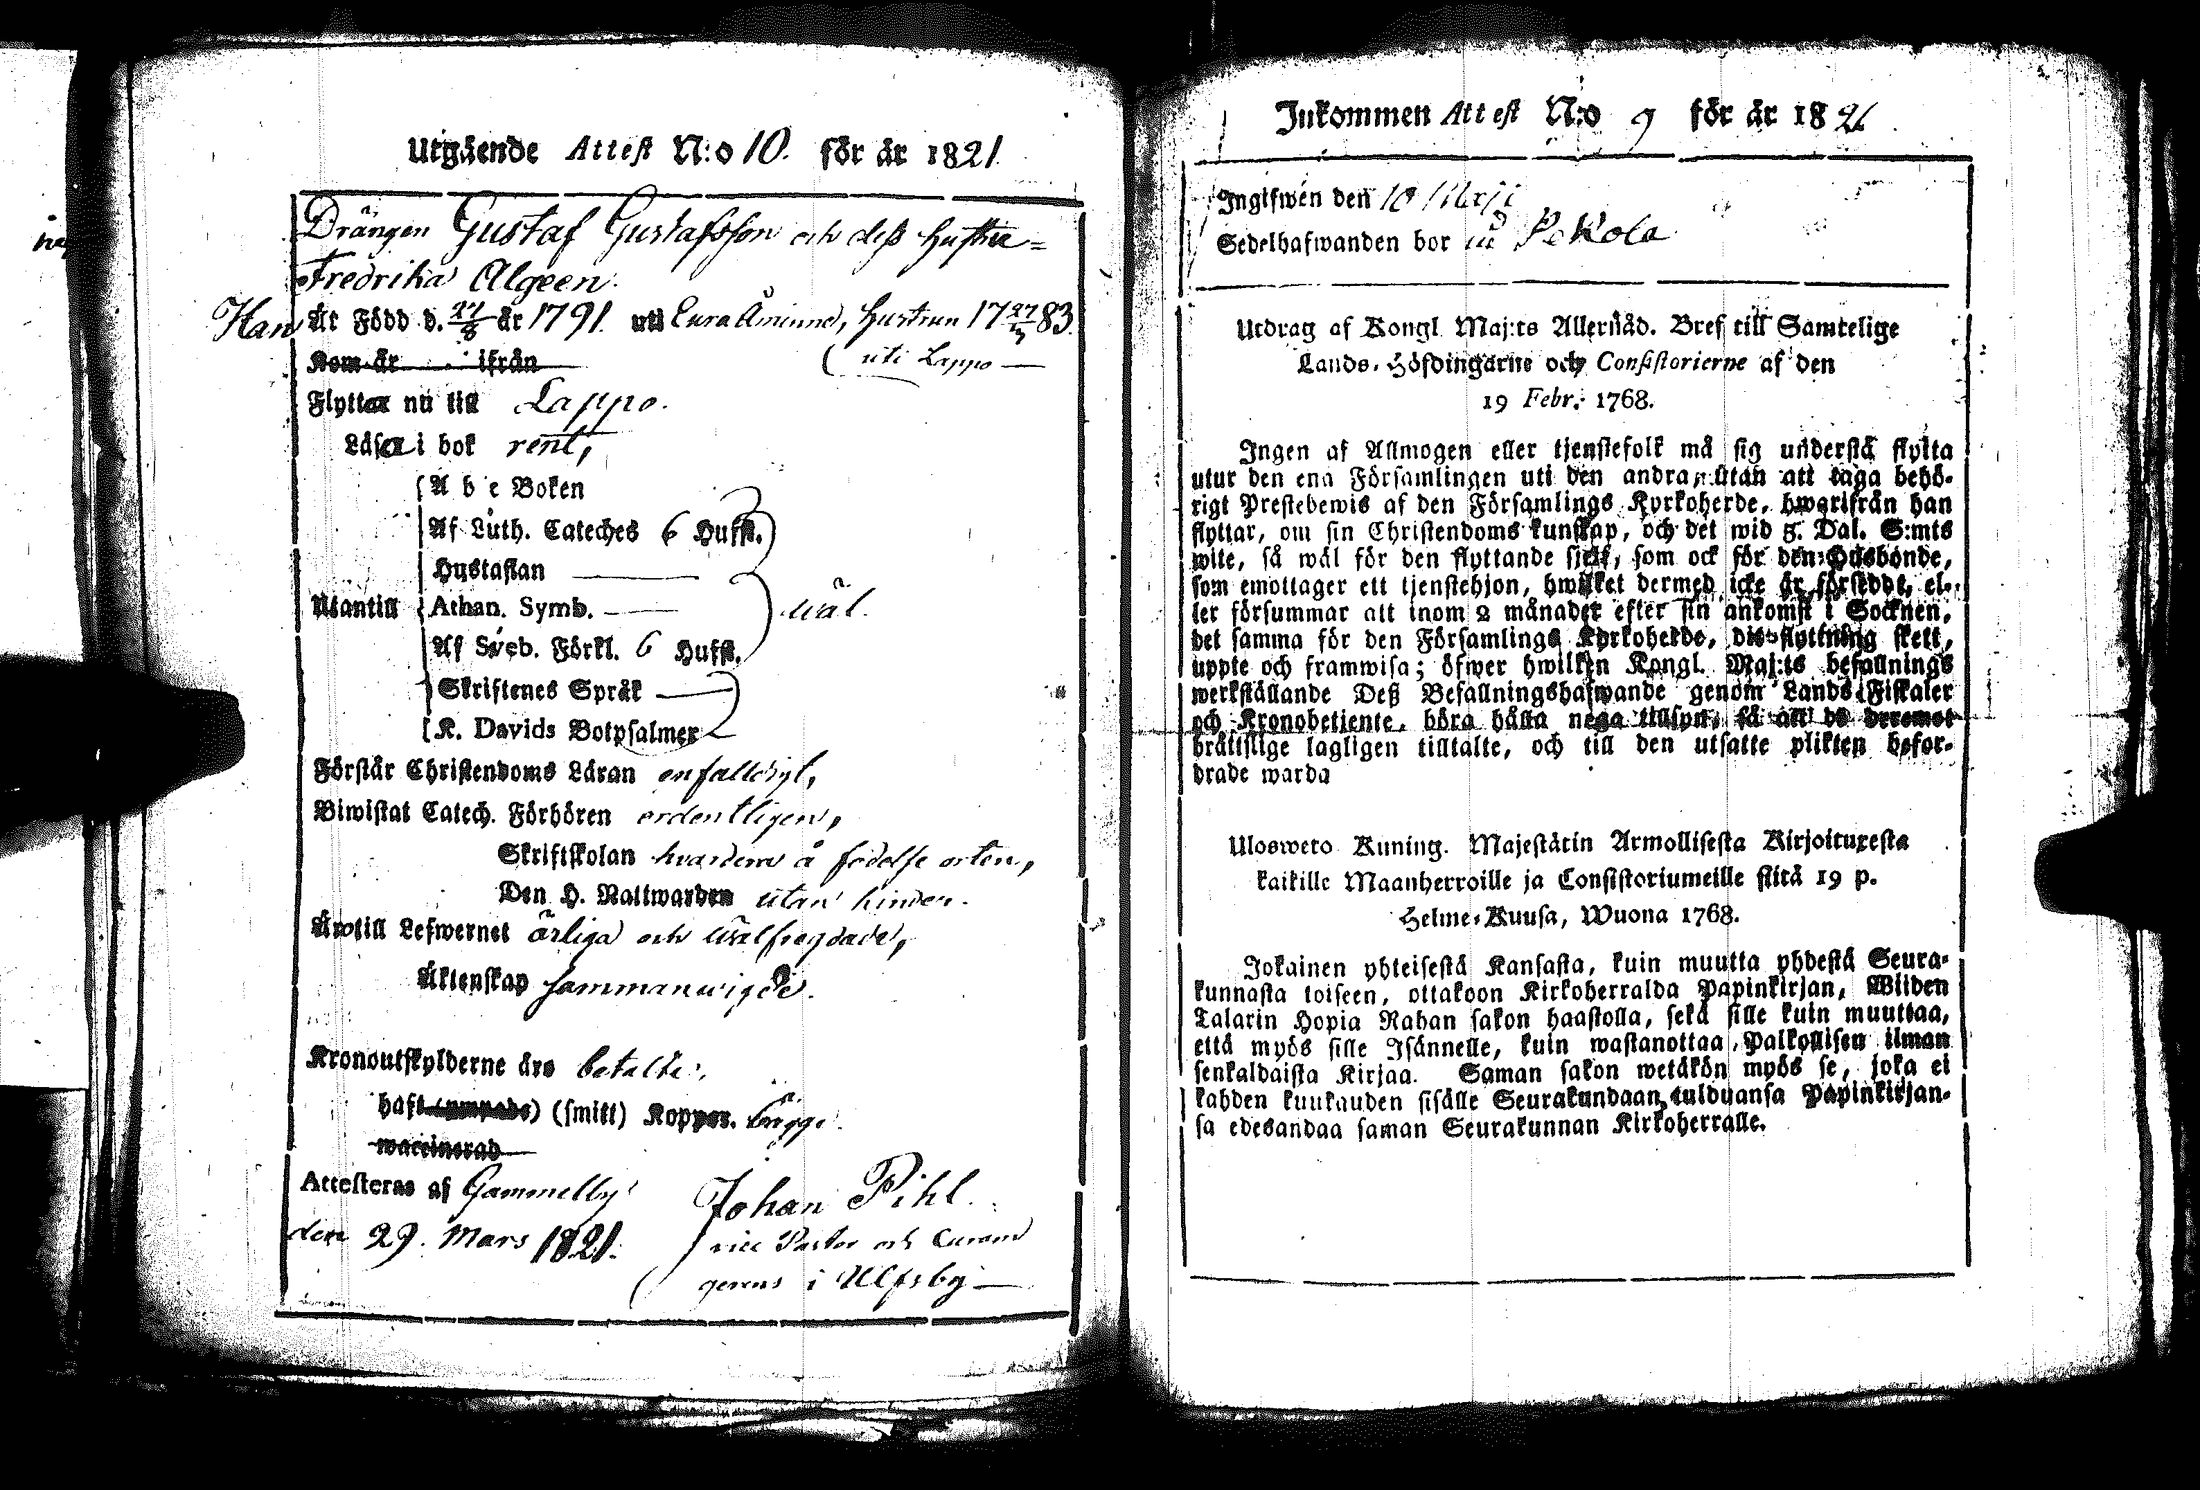 Utgående Attest N:o 10. för år 1821.
Drängen Gustaf Gustafsson och dess hustru =
Fredrika Algeen.
Han Är Född d. 27/8 år 1791. uti Eura Åminne, hustrun 17 27/3 83.
Kom år ifrån
( uti Lappo —
Flyttar nu till Lappo.
Läsa i bok rent,
A b c Boken
Af Luth. Cateches 6 Hufst.
Hustaflan
Utantill Athan. Symb. wäl.
Af Sveb. Förkl. 6 Hufst.
Skriftenes Språk
K. Davids Botpsalmer
Förstår Christendoms Läran enfalldigt,
Biwistat Catech. Förhören ordentligen,
Skriftskolan hwardera å födelse orten,
Den H. Nattwarden utan hinder.
Äro till Lefwernet ärliga och wälfrägdade,
Äktenskap sammanwigde.
Kronoutskylderne äro betalte.
haft (ympade) (smitt) Koppor. bägge.
waccinerad
Attesteras af Gammelby
den 29. Mars 1821.
Johan Pihl.
vice Pastor och Curam
gerens i Ulfsby —
Inkommen Attest N:o 9 för år 1821
Ingifwen den 10 Maji
Sedelhafwanden bor i Pekola
Utdrag af Kongl. Maj:ts Allernåd. Bref till Samtelige
Lands-Höfdingarne och Consistorierne af den
19 Febr. 1768.
Ingen af Allmogen eller tjenstefolk må sig understå flytta
utur den ena Församlingen uti den andra, utan att taga behö-
rigt Prestebewis af den Församlings Kyrkoherde, hwarifrån han
flyttar, om sin Christendoms kunskap, och det wid 5. Dal. S:mts
wite, så wäl för den flyttande sjelf, som ock för den Husbonde,
som emottager ett tjenstehjon, hwilket dermed icke är försedt, el-
ler försummar att inom 2 månader efter sin ankomst i Socknen,
det samma för den Församlings Kyrkoherde, dit flyttning skett,
uppte och framwisa; öfwer hwilken Kongl. Maj:ts befallnings
werkställande Deß Befallningshafwande genom Lands Fiskaler
och Kronobetjente, böra hålla noga tillsyn, så att de deremot
bråttslige lagligen tilltalte, och till den utsatte plikten befor-
drade warda
Ulosweto Kuning. Majestätin Armollisesta Kirjoituxesta
kaikille Maanherroille ja Consistoriumeille siitä 19 p.
Helme-Kuusa, Wuona 1768.
Jokainen yhteisestä Kansasta, kuin muutta yhdestä Seura-
kunnasta toiseen, ottakoon Kirkoherralda Papinkirjan, Wiiden
Talarin Hopia Rahan sakon haastolla, sekä sille kuin muuttaa,
että myös sille Isännelle, kuin wastanottaa Palkollisen ilman
senkaldaista Kirjaa. Saman sakon wetäkön myös se, joka ei
kahden kuukauden sisälle Seurakundaan tulduansa Papinkirjan-
sa edesandaa saman Seurakunnan Kirkoherralle.